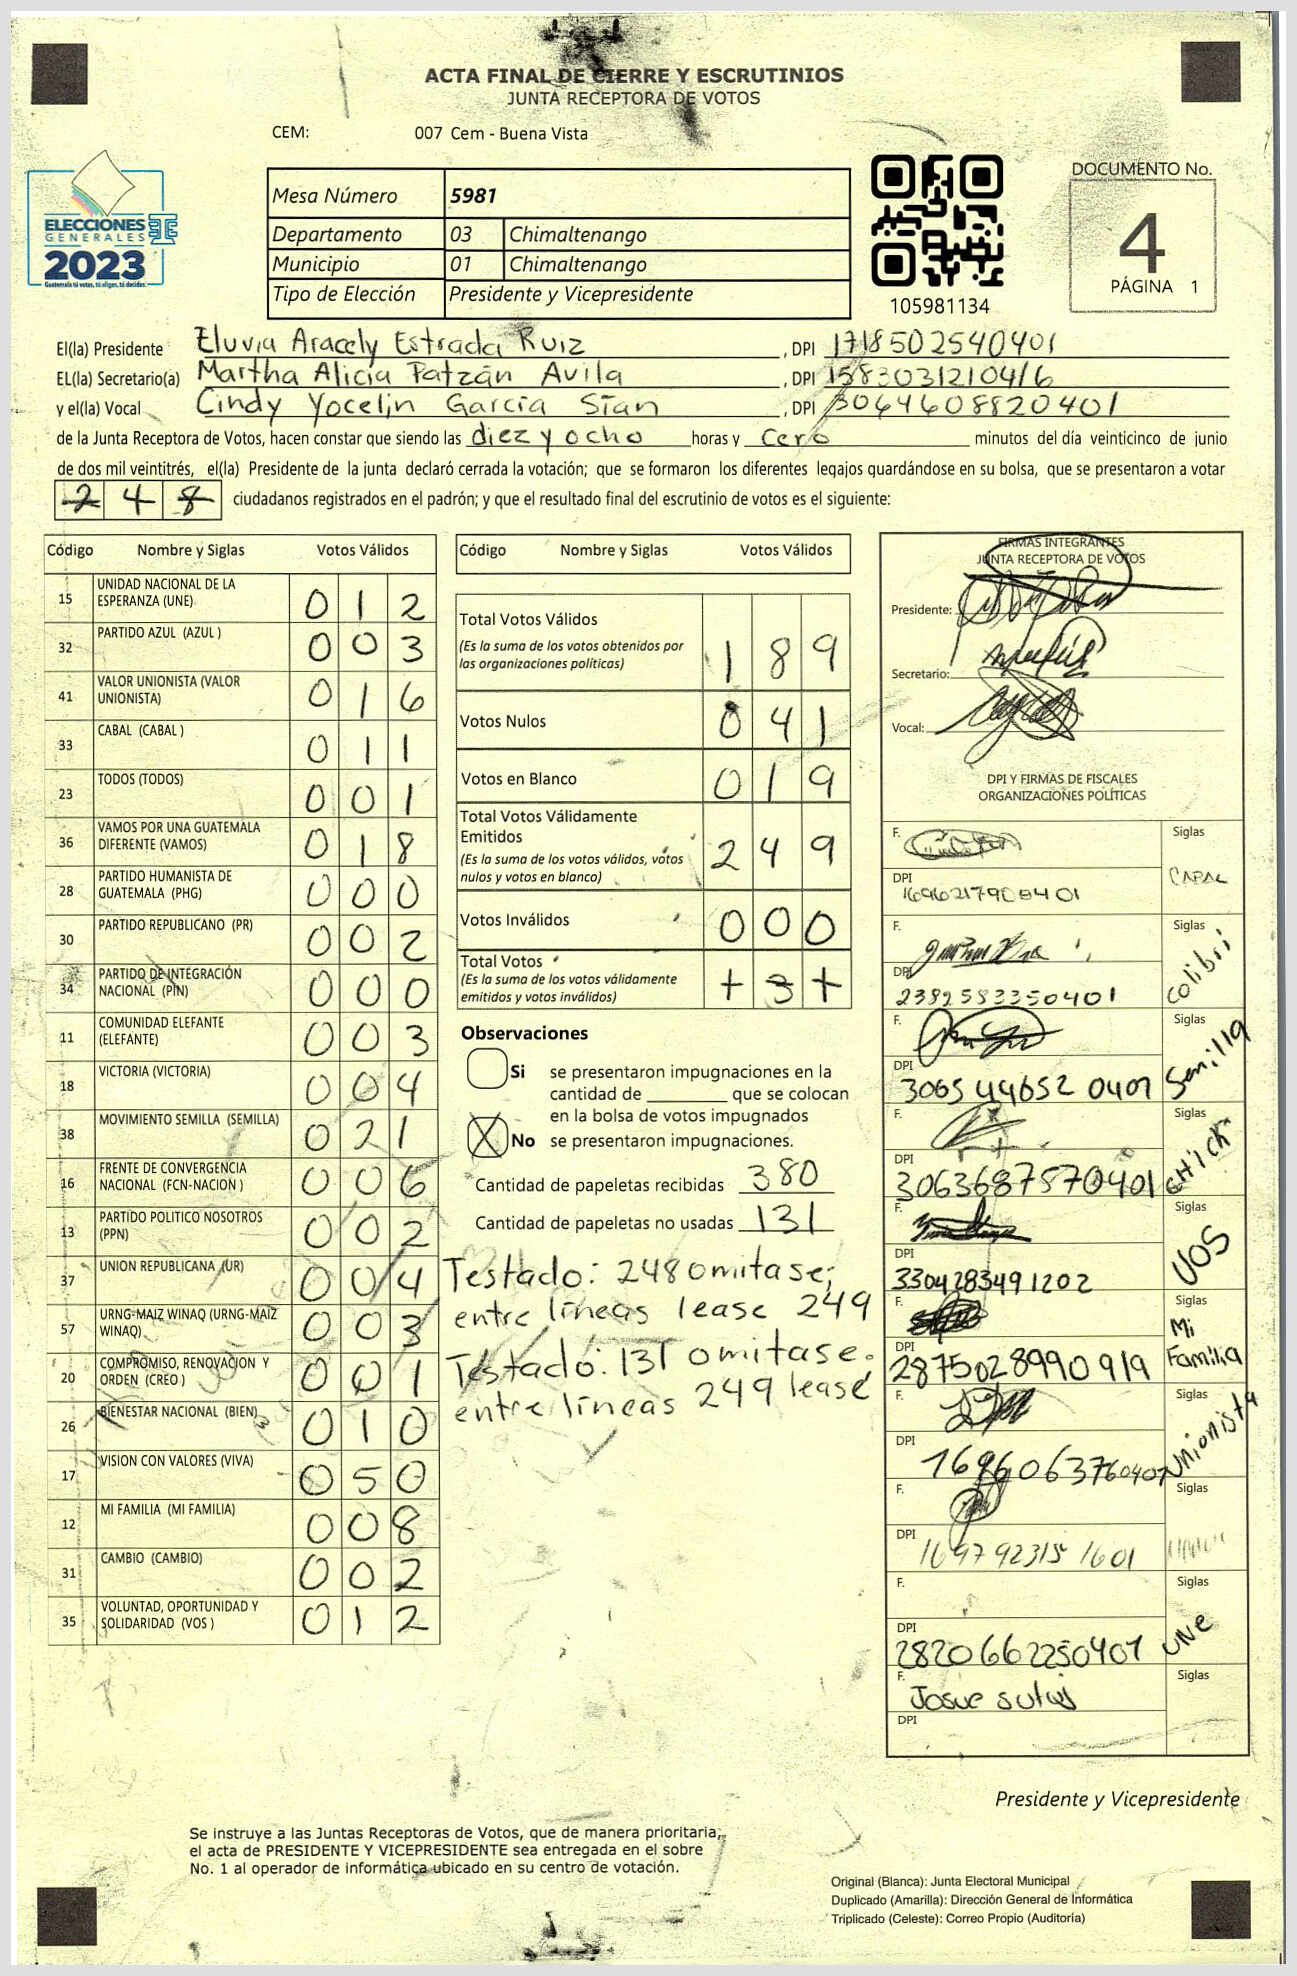 ACTA FINAL DE CIERRE Y ESCRUTINIOS
JUNTA RECEPTORA DE VOTOS
CEM: 007 Cem - Buena Vista
ELECCIONES
GENERALES
2023
Guatemala tú votas, tú eliges, tú decides
Mesa Número 5981
Departamento 03 Chimaltenango
Municipio 01 Chimaltenango
Tipo de Elección Presidente y Vicepresidente
105981134
DOCUMENTO No.
4
PÁGINA 1
El(la) Presidente Eluvia Aracely Estrada Ruiz , DPI 1718502540401
EL(la) Secretario(a) Martha Alicia Patzán Avila , DPI 1583031210416
y el(la) Vocal Cindy Yocelin García Sían , DPI 3064608820401
de la Junta Receptora de Votos, hacen constar que siendo las diez y ocho horas y Cero minutos del día veinticinco de junio
de dos mil veintitrés, el(la) Presidente de la junta declaró cerrada la votación; que se formaron los diferentes legajos guardándose en su bolsa, que se presentaron a votar
248 ciudadanos registrados en el padrón; y que el resultado final del escrutinio de votos es el siguiente:
Código Nombre y Siglas Votos Válidos
15 UNIDAD NACIONAL DE LA ESPERANZA (UNE) 012
32 PARTIDO AZUL (AZUL ) 003
41 VALOR UNIONISTA (VALOR UNIONISTA) 016
33 CABAL (CABAL ) 011
23 TODOS (TODOS) 001
36 VAMOS POR UNA GUATEMALA DIFERENTE (VAMOS) 018
28 PARTIDO HUMANISTA DE GUATEMALA (PHG) 000
30 PARTIDO REPUBLICANO (PR) 002
34 PARTIDO DE INTEGRACIÓN NACIONAL (PIN) 000
11 COMUNIDAD ELEFANTE (ELEFANTE) 003
18 VICTORIA (VICTORIA) 004
38 MOVIMIENTO SEMILLA (SEMILLA) 021
16 FRENTE DE CONVERGENCIA NACIONAL (FCN-NACION ) 006
13 PARTIDO POLITICO NOSOTROS (PPN) 002
37 UNION REPUBLICANA (UR) 004
57 URNG-MAIZ WINAQ (URNG-MAIZ WINAQ) 003
20 COMPROMISO, RENOVACION Y ORDEN (CREO ) 001
26 BIENESTAR NACIONAL (BIEN) 010
17 VISION CON VALORES (VIVA) 050
12 MI FAMILIA (MI FAMILIA) 008
31 CAMBIO (CAMBIO) 002
35 VOLUNTAD, OPORTUNIDAD Y SOLIDARIDAD (VOS ) 012
Código Nombre y Siglas Votos Válidos
Total Votos Válidos 189
(Es la suma de los votos obtenidos por
las organizaciones políticas)
Votos Nulos 041
Votos en Blanco 019
Total Votos Válidamente
Emitidos 249
(Es la suma de los votos válidos, votos
nulos y votos en blanco)
Votos Inválidos 000
Total Votos 131
(Es la suma de los votos válidamente
emitidos y votos inválidos)
Observaciones
Si se presentaron impugnaciones en la
cantidad de ________ que se colocan
en la bolsa de votos impugnados
X No se presentaron impugnaciones.
Cantidad de papeletas recibidas 380
Cantidad de papeletas no usadas 131
Testado: 248 omitase;
entre líneas lease 249
Testado: 131 omitase.
entre líneas 249 lease
FIRMAS INTEGRANTES
JUNTA RECEPTORA DE VOTOS
Presidente:
Secretario:
Vocal:
DPI Y FIRMAS DE FISCALES
ORGANIZACIONES POLÍTICAS
F. Siglas
DPI 1696217900401 CABAL
F. Siglas
DPI 2389583350401 Colibri
F. Siglas
DPI 3065446520401 Semilla
F. Siglas
DPI 3063687570401
F. Siglas
DPI 3304283491202 VOS
F. Siglas
DPI 2875028990919 Mi Familia
F. Siglas
DPI 1696063760407 Unionista
F. Siglas
DPI 1697923151601
F. Siglas
DPI 2820662250401 UNe
F. Josue Siglas
DPI
Presidente y Vicepresidente
Se instruye a las Juntas Receptoras de Votos, que de manera prioritaria,
el acta de PRESIDENTE Y VICEPRESIDENTE sea entregada en el sobre
No. 1 al operador de informática ubicado en su centro de votación.
Original (Blanca): Junta Electoral Municipal
Duplicado (Amarilla): Dirección General de Informática
Triplicado (Celeste): Correo Propio (Auditoría)